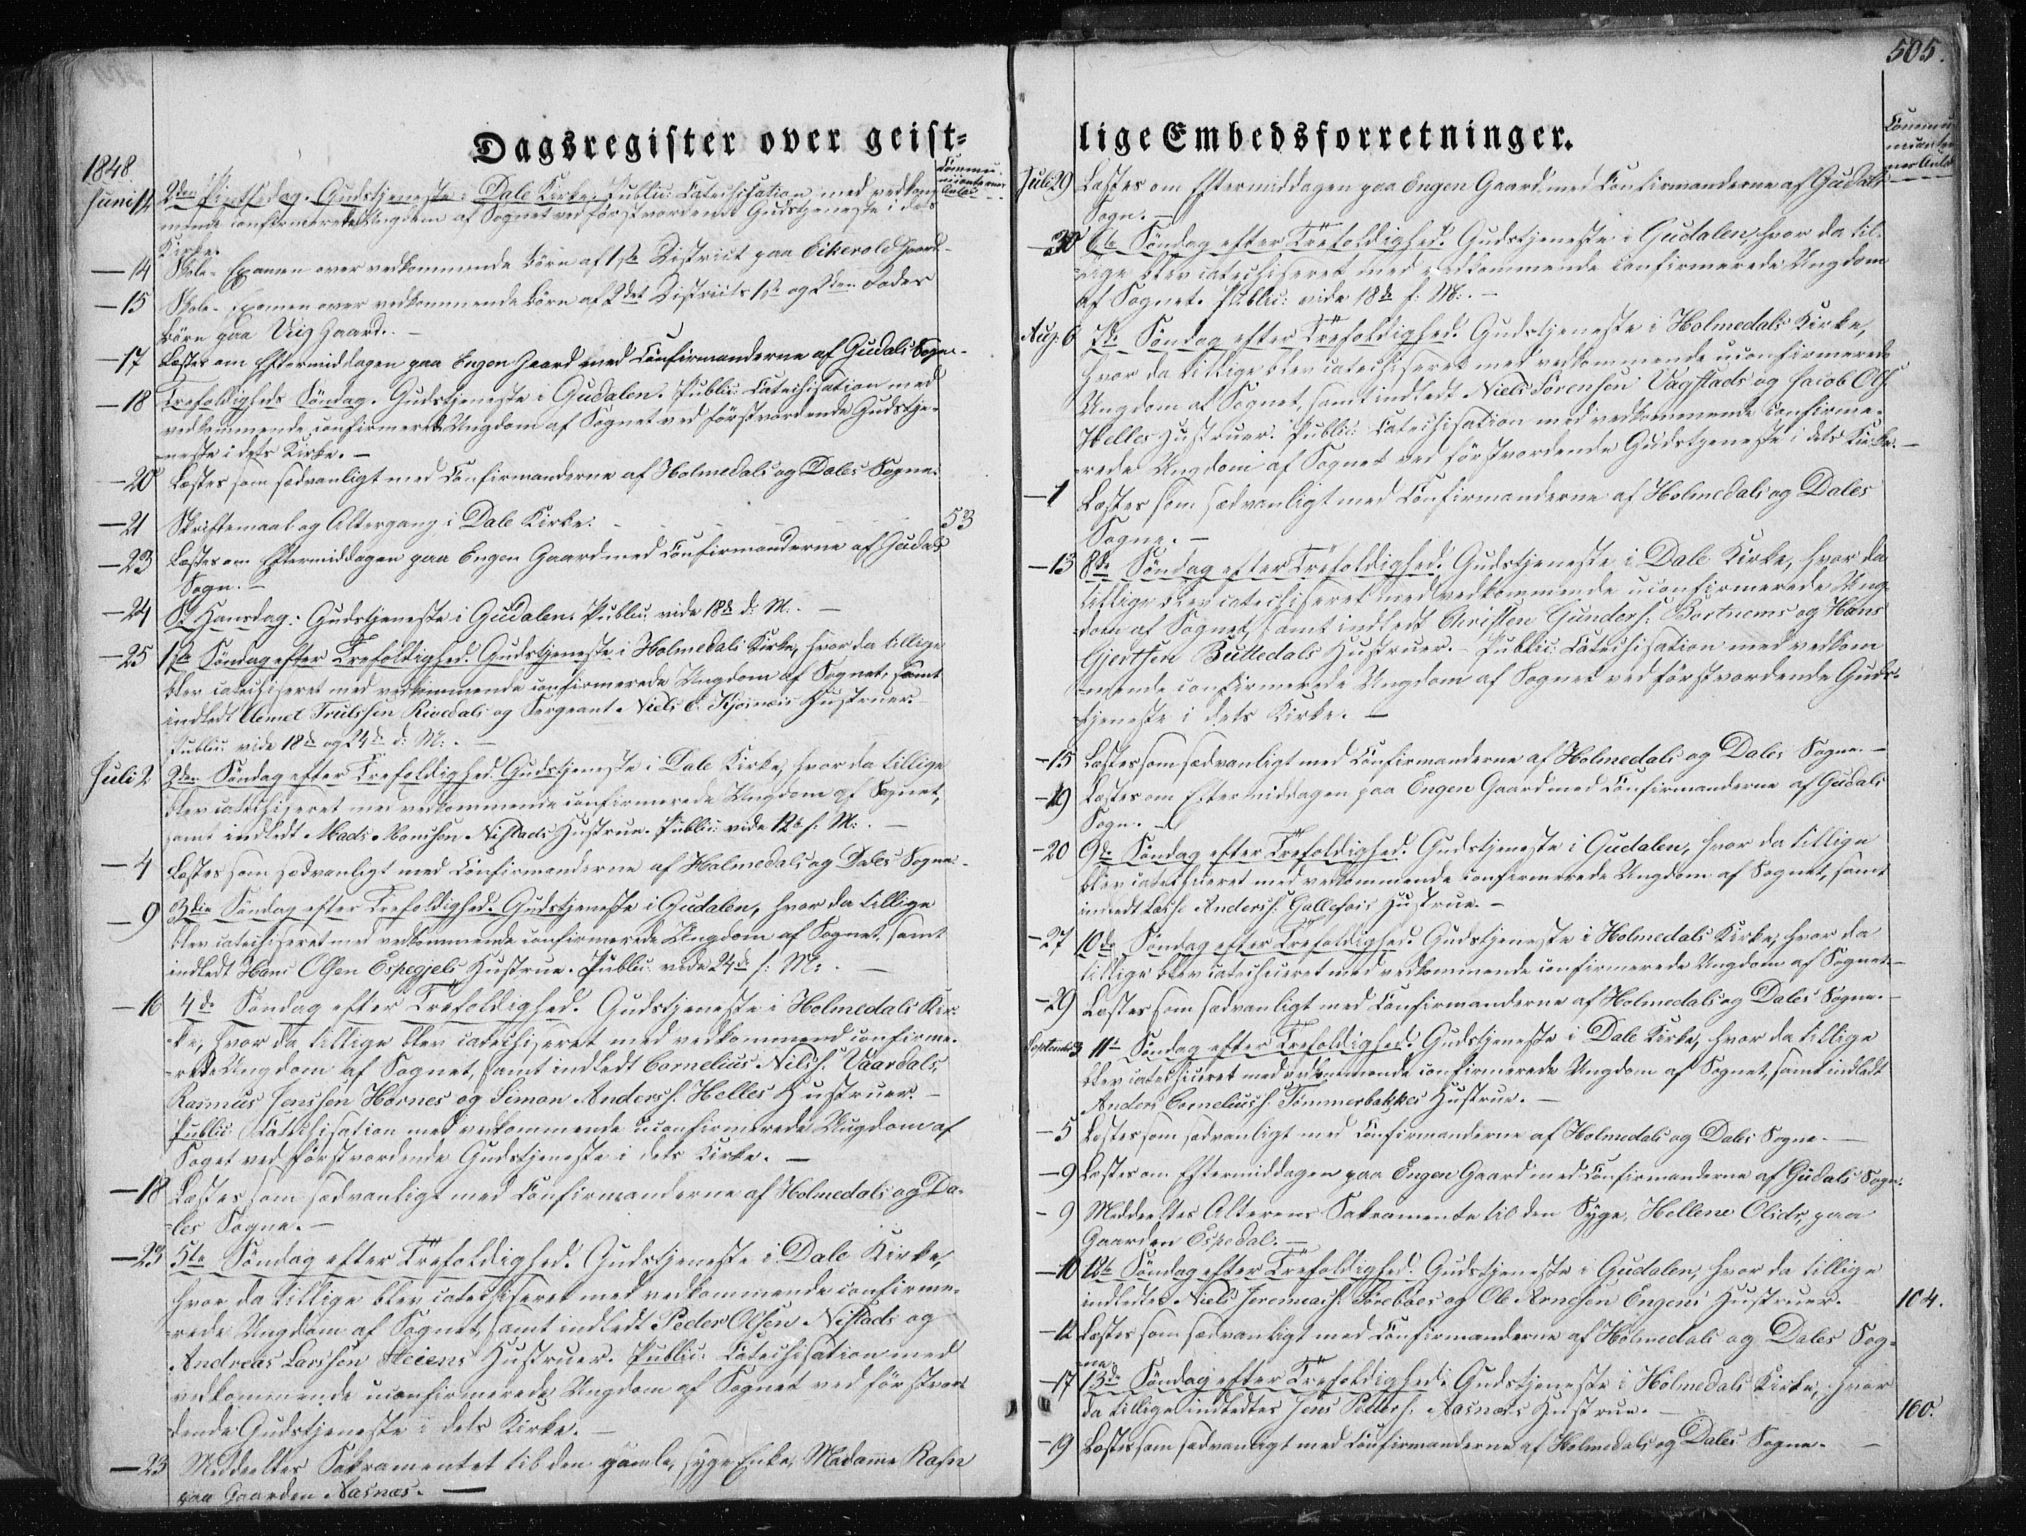 505.
Dagsregister over geist-
lige Embedsforretninger.
1848.
Commu-
nicanternes
Antal
Juni 12 2den Pintsedag. Gudstjeneste i Dale Kirke. Public: Catechisation med vedkom-
mende confirmerede Ungdom af Sognet ved förstvordende Gudstjeneste i dets
Kirke.
— 14 Skole-Examen over vedkommende Börn af 1ste District paa Eikevold Gaard.
— 15 Skole-Examen over vedkommende Börn af 2det Districts 1ste og 2den Rodes
Börn paa Gaard. —
— 17 Læstes om Eftermiddagen paa Engen Gaard med Confirmanderne af Gudals Sogn.
— 18 Trefoldigheds Söndag. Gudstjeneste i Gudalen. Public: Catechisation med
vedkommende confirmerede Ungdom af Sognet ved förstvordende Gudstje-
neste i dets Kirke. —
— 20 Læstes som sædvanligt med Confirmanderne af Holmedals og Dales Sogne.
— 21 Skriftemaal og Altergang i Dale Kirke. 53
— 23 Læstes om Eftermiddagen paa Engen Gaard med Confirmanderne af Gudals
Sogn. —
— 24 St. Hansdag. Gudstjeneste i Gudalen. Public: vide 18de d: M: . —
— 25 1ste Söndag efter Trefoldighed. Gudstjeneste i Holmedals Kirke, hvor da tillige
blev catechiseret med vedkommende confirmerede Ungdom af Sognet, samt
indledt Clemet Trulssen Rivedals og Sergeant Niels C. Hustruer.
Public: vide 18de og 24de d: M: . —
Juli 2 2den Söndag efter Trefoldighed. Gudstjeneste i Dale Kirke, hvor da tillige
blev catechiseret med vedkommende confirmerede Ungdom af Sognet,
samt indledt Mads Monsen Nistads Hustrue. Public: vide 12te f: M: . —
— 4 Læstes som sædvanligt med Confirmanderne af Holmedals og Dales Sogne.
— 9 3die Söndag efter Trefoldighed. Gudstjeneste i Gudalen, hvor da tillige
blev catechiseret med vedkommende confirmerede Ungdom af Sognet, samt
indledt Hans Olsen Espegjels Hustrue. Public: vide 24de f: M: . —
— 16 4de Söndag efter Trefoldighed. Gudstjeneste i Holmedals Kir-
ke, hvor da tillige blev catechiseret med vedkommend confirme-
rede Ungdom af Sognet, samt indledt Cornelius Nilss. Vaardals,
Rasmus Jenssen Hornes og Simon Anderss. Helles Hustruer. —
Public: Catechisation med vedkommende uconfirmerede Ungdom af
Soget ved förstvordende Gudstjeneste i dets Kirke. —
— 18 Læstes som sædvanligt med Confirmanderne af Holmedals og Da-
les Sogne. —
— 23 5te Söndag efter Trefoldighed. Gudstjeneste i Dale Kirke,
hvor da tillige blev catechiseret med vedkommende confirme-
rede Ungdom af Sognet, samt indledt Peder Olsen Nistads og
Andreas Larssen Steiens Hustruer. Public: Catechisation med
vedkommende uconfirmerede Ungdom af Sognet ved förstvor-
dende Gudstjeneste i dets Kirke. —
— 23 Meddeeltes Sakramentet til den gamle, syge Enke, Madame Rafn
paa Gaarden Aasnæs. —
Commu-
nicanter-
nes Antal
Juli 29 Læstes om Eftermiddagen paa Engen Gaard med Confirmanderne af Gudals
Sogn. —
— 30 6te Söndag efter Trefoldighed. Gudstjeneste i Gudalen, hvor da til-
lige blev catechiseret med vedkommende confirmerede Ungdom
af Sognet. Public: vide 18de f: M: . —
Aug. 6 7de Söndag efter Trefoldighed. Gudstjeneste i Holmedals Kirke,
hvor da tillige blev catechiseret med vedkommende uconfirmerede
Ungdom af Sognet, samt indledt Niels Sörensen Vagstads og Jacob Ols.
Helles Hustruer. Public: Catechisation med vedkommende confirme-
rede Ungdom af Sognet ved förstvordende Gudstjeneste i dets Kirke. —
— 1 Læstes som sædvanligt med Confirmanderne af Holmedals og Dales
Sogne. —
— 13 8de Söndag efter Trefoldighed. Gudstjeneste i Dale Kirke, hvor da
tillige blev catechiseret med vedkommende uconfirmerede Ung-
dom af Sognet, samt indledt Christen Gunders. Bortnems og Hans
Gjertsen Buttedals Hustruer. — Public: Catechisation med vedkom-
mende confirmerede Ungdom af Sognet ved förstvordende Guds-
tjeneste i dets Kirke. —
— 15 Læstes som sædvanligt med Confirmanderne af Holmedals og Dales Sogne. —
— 19 Læstes om Eftermiddagen paa Engen Gaard med Confirmanderne af Gudals
Sogn. —
— 20 9de Söndag efter Trefoldighed. Gudstjeneste i Gudalen, hvor da tillige
blev catechiseret med vedkommende confirmerede Ungdom af Sognet, samt
indledt Lasse Anderss. Gallefos Hustrue. —
— 27 10de Söndag efter Trefoldighed. Gudstjeneste i Holmedals Kirke, hvor da
tillige blev catechiseret med vedkommende confirmerede Ungdom af Sognet. —
— 29 Læstes som sædvanligt med Confirmanderne af Holmedals og Dales Sogne. —
September 3 11te Söndag efter Trefoldighed. Gudstjeneste i Dale Kirke, hvor da tillige
blev catechiseret med vedkommende confirmerede Ungdom af Sognet, samt indledt
Anders Corneliuss. Tömmerbakkes Hustrue. —
— 5 Læstes som sædvanligt med Confirmanderne af Holmedals og Dales Sogne. —
— 9 Læstes om Eftermiddagen paa Engen Gaard med Confirmanderne af Gudals Sogn.
- 9 Meddeeltes Alterens Sakramente til den Syge, Hellene Olsdr, paa
Gaarden Espedal. —
— 10 12te Söndag efter Trefoldighed. Gudstjeneste i Gudalen, hvor da tillige
indledtes Niels Jeremiass. og Ole Arnesen Engens Hustruer. 104.
— 12 Læstes som sædvanligt med Confirmanderne af Holmedals og Dales Sog-
ne.
— 17 13de Söndag efter Trefoldighed. Gudstjeneste i Holmedals Kirke, hvor
da tillige indledtes Jens Peders. Aasnæs Hustrue. — 160.
— 19 Læstes som sædvanligt med Confirmanderne af Holmedals og Dales Sogne. —